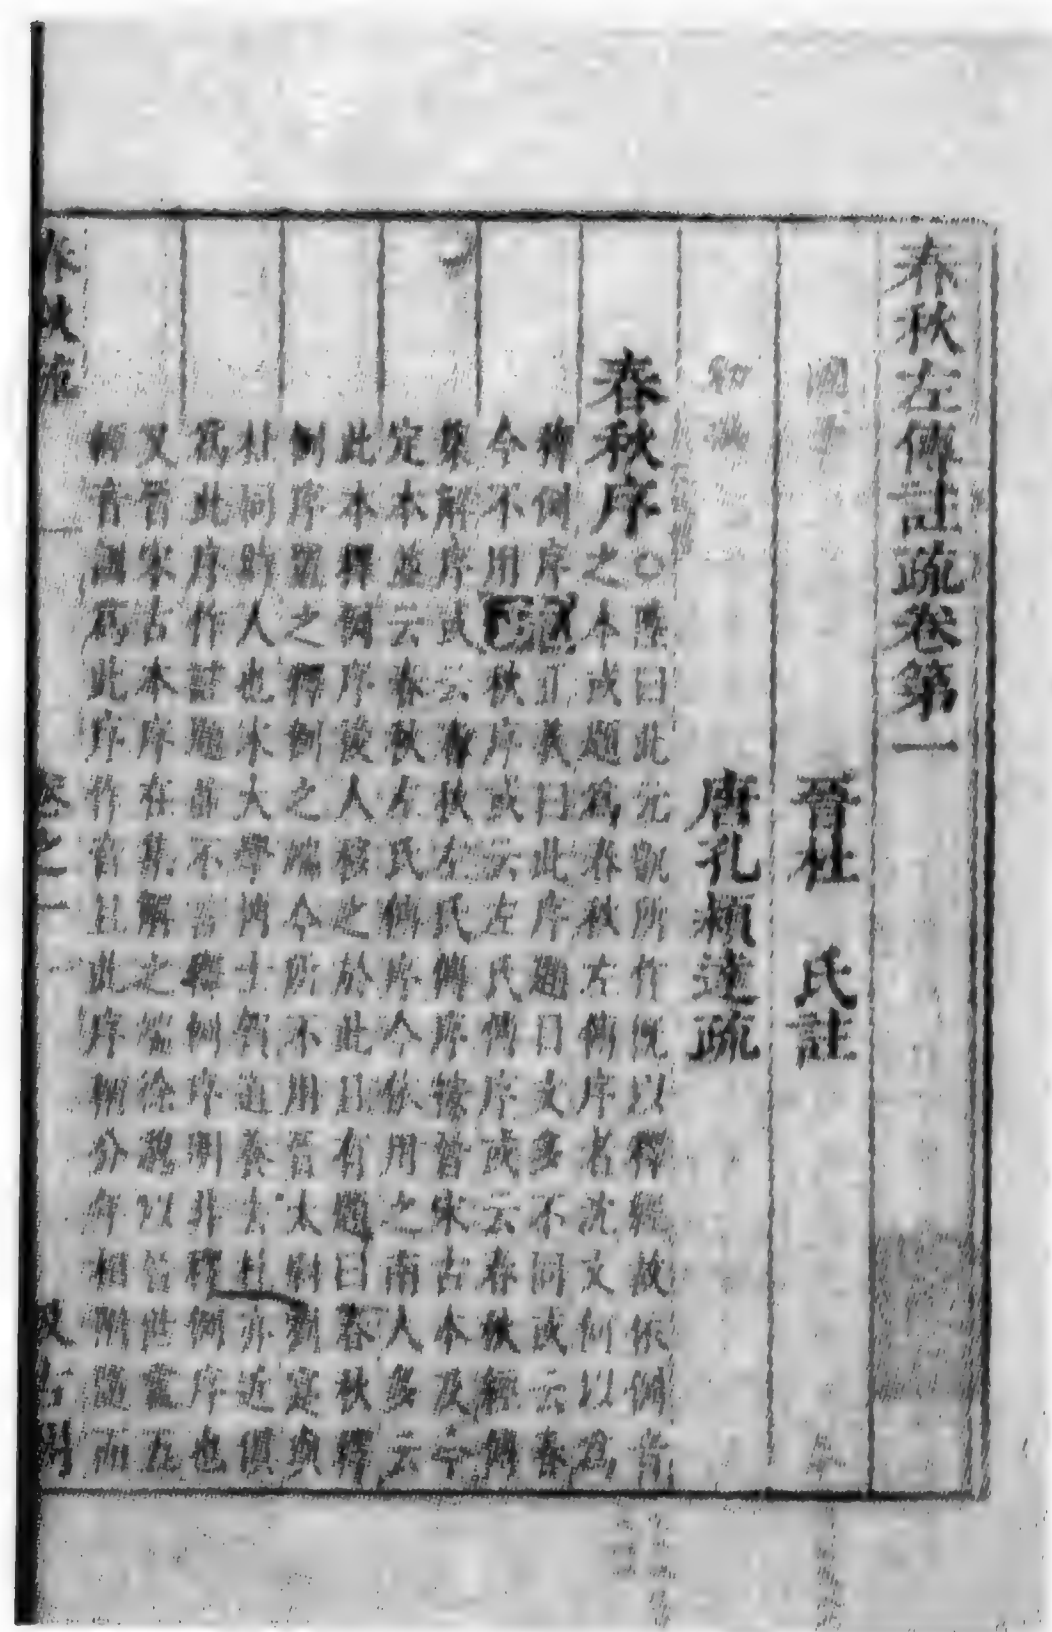 春秋左傳註疏卷第一
晉杜 氏註
唐孔穎達疏
春秋序
○陸曰此元凱所作既以釋經故依例音
之本或題爲春秋左傳序者沈文何以爲
釋例序疏正義曰此序題目文多不同或云春
今不用秋序或云左氏傳序或云春秋經傳
集解序或云春秋左氏傳序據晉宋古本及今
定本並云春秋左氏傳序今依用之南人多云
此本釋例序後人移之於此且有題曰春秋釋
例序置之釋例之端今所不用晉太尉劉寔與
杜同時人也宋大學博士賀道養去杜亦近俱
爲此序作註題並不言釋例序明非釋例序也
又晉宋古本序在集解之端徐邈以晉世言五
經音訓爲此序作音且此序稱分年相附隨而
春秋疏 卷之一